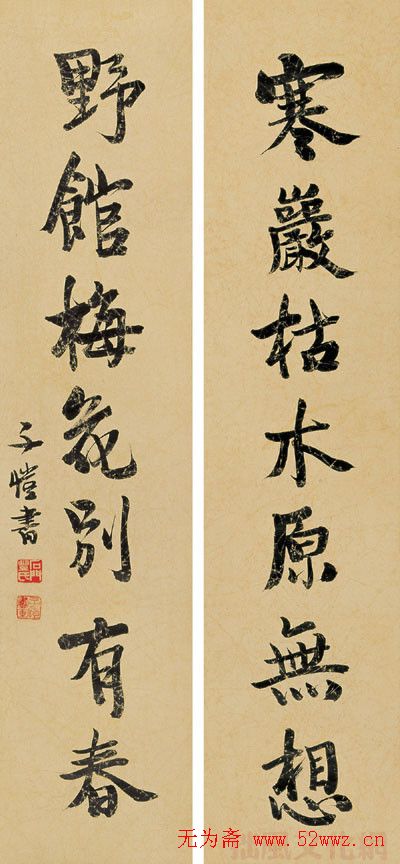 寒巖枯木原無想
野館梅花別有春
子愷書
石門豐氏
无为斋 www.52wwz.cn